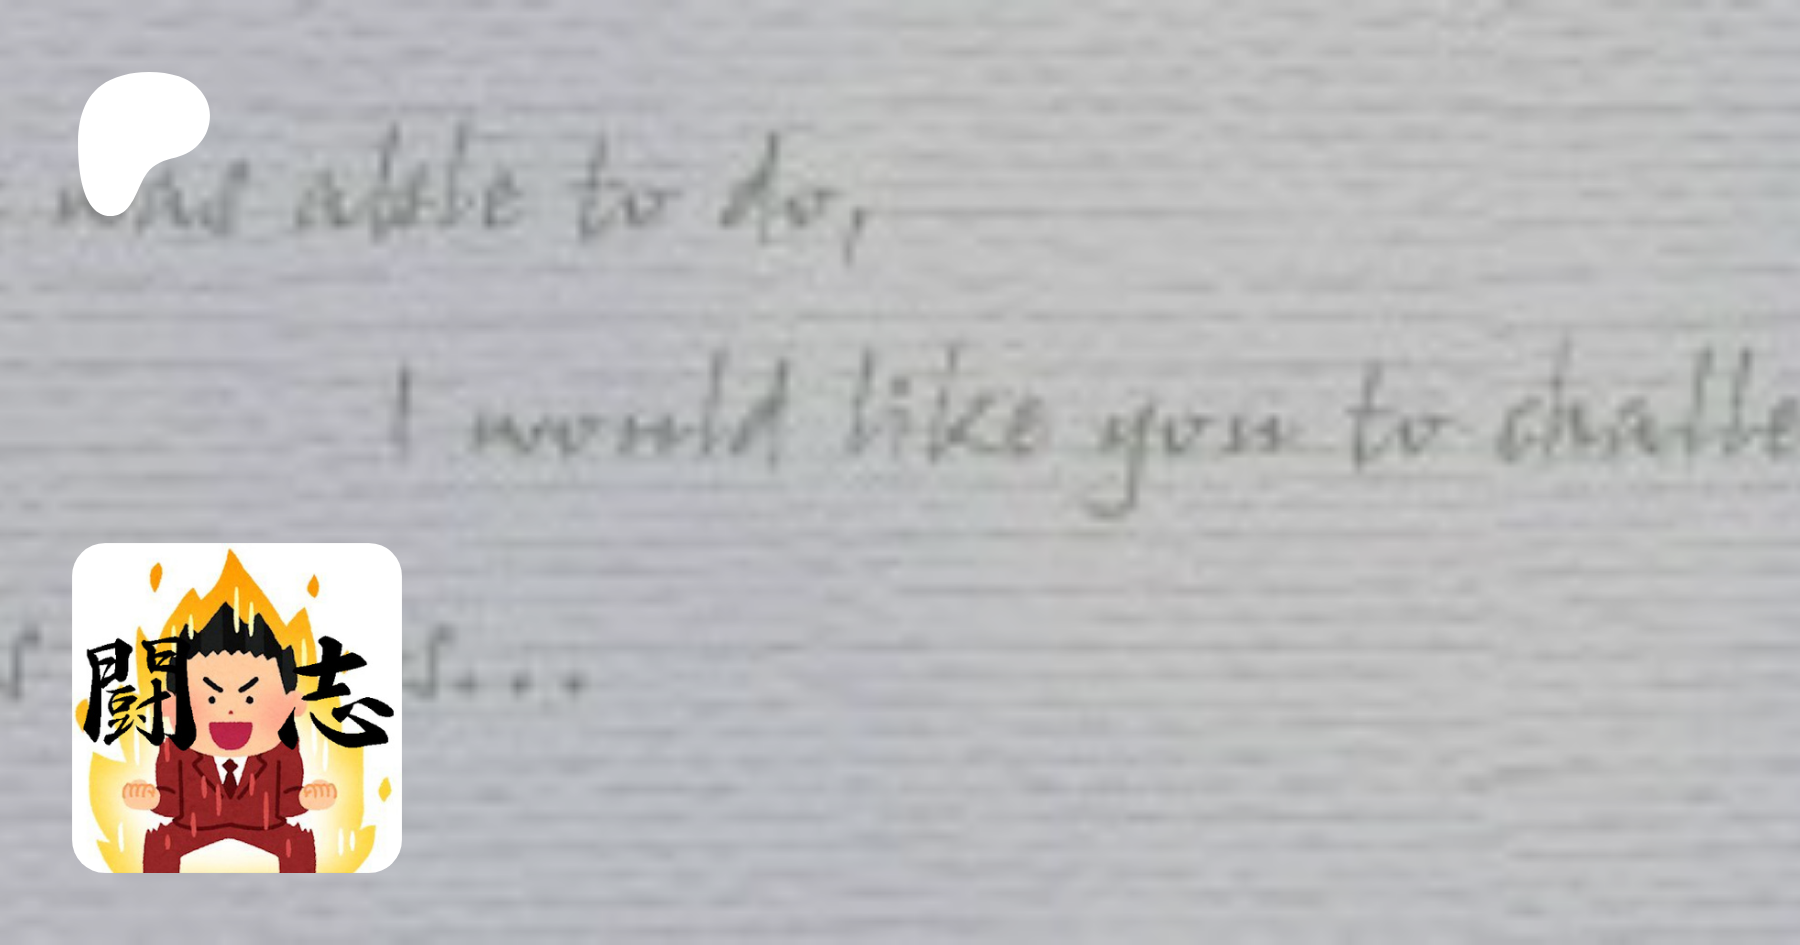 was able to do,
I would like you to challe
s...
闘志